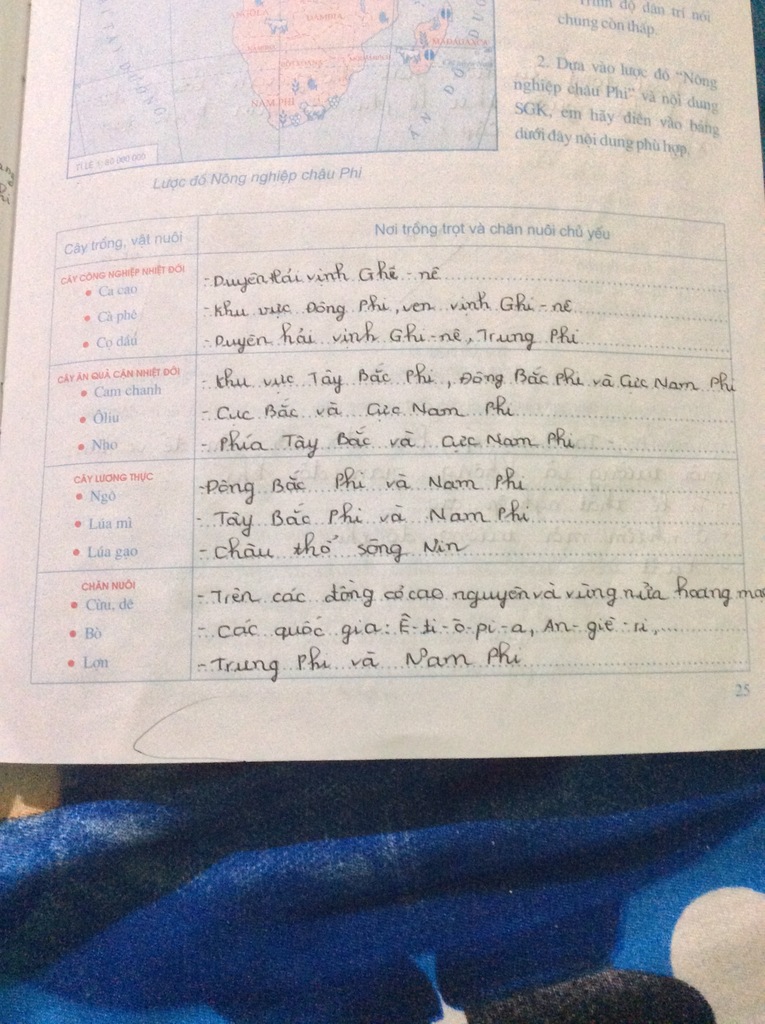 Trình độ dân trí nói
chung còn thấp.
ANGÔLA
DAMBIA
MAĐAGAXCA
NAM PHI
ẤN ĐỘ
2. Dựa vào lược đồ “Nông
nghiệp châu Phi” và nội dung
SGK, em hãy điền vào bảng
dưới đây nội dung phù hợp.
TỈ LỆ 1: 80 000 000
Lược đồ Nông nghiệp châu Phi
Cây trồng, vật nuôi
Nơi trồng trọt và chăn nuôi chủ yếu
CÂY CÔNG NGHIỆP NHIỆT ĐỚI
• Ca cao
- Duyên hải vịnh Ghi - nê
• Cà phê
- Khu vực Đông Phi, ven vịnh Ghi - nê
• Cọ dầu
- Duyên hải vịnh Ghi - nê, Trung Phi
CÂY ĂN QUẢ CẬN NHIỆT ĐỚI
• Cam chanh
- Khu vực Tây Bắc Phi, Đông Bắc Phi và Cực Nam Phi
• Ôliu
- Cực Bắc và Cực Nam Phi
• Nho
- Phía Tây Bắc và Cực Nam Phi
CÂY LƯƠNG THỰC
• Ngô
- Đông Bắc Phi và Nam Phi
• Lúa mì
- Tây Bắc Phi và Nam Phi
• Lúa gạo
- Châu thổ sông Nin
CHĂN NUÔI
• Cừu, dê
- Trên các đồng cỏ cao nguyên và vùng nửa hoang mạc
• Bò
- Các quốc gia: Ê-ti-ô-pi-a, An-giê-ri,
• Lợn
- Trung Phi và Nam Phi
25